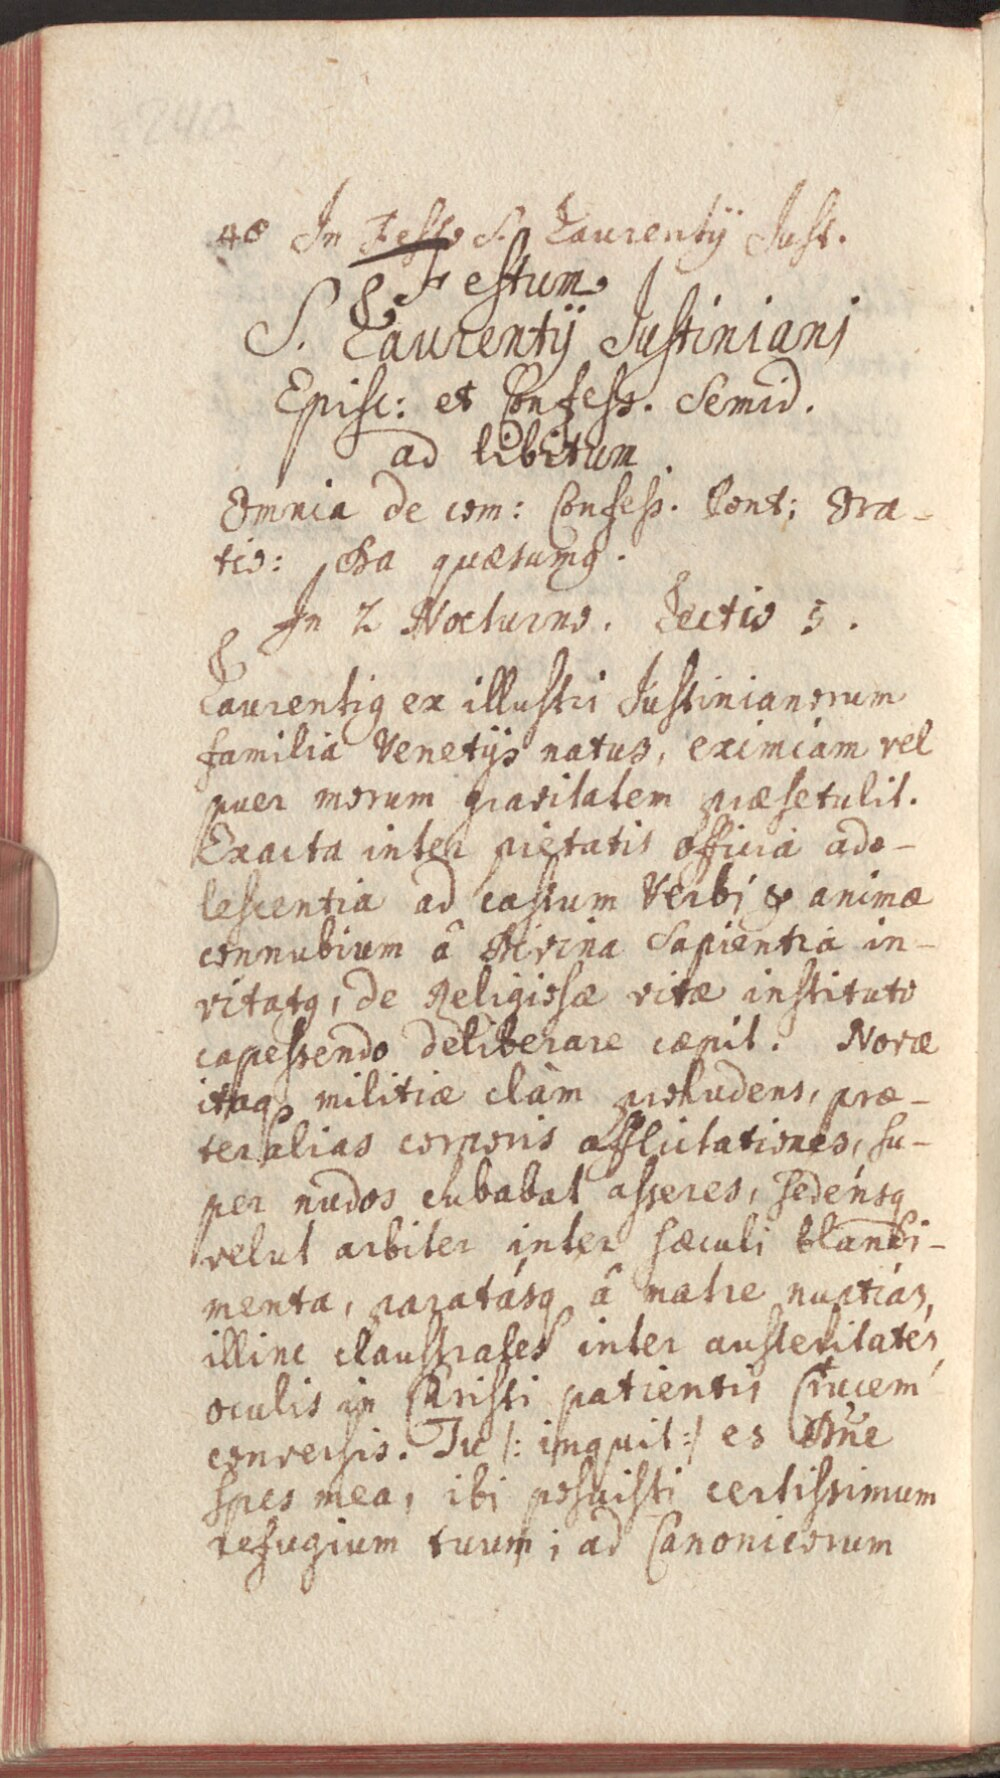 240
40 In Festo S. Laurentÿ Just.
Festum
S. Laurentÿ Justiniani
Episc: et Confess. Semid.
ad libitum
Omnia de com: Confess. Pont; Ora-
tio: Da quæsumꝰ.
In 2 Nocturno. Lectio 5.
Laurentiꝰ ex illustri Justinianorum
familia Venetÿs natus, eximiam vel
puer morum gravitatem præsetulit.
Exacta inter pietatis officia ado-
lescentia ad castum Verbi & animæ
connubium â Divina Sapientia in-
vitatꝰ, de Religiosæ vitæ instituto
capessendo deliberare cæpit. Novæ
itaqꝫ militiæ clàm proludens, præ-
ter alias corporis afflictationes, su-
per nudos cubabat asseres, sedénsqꝫ
velut arbiter inter sæculi blandi-
menta, paratásqꝫ â matre nuptias,
illinc claustrales inter austeritates,
oculis in Christi patientis Crucem
conversis. Tu /: inquit :/ es Dn̄e
spes mea, ibi posuisti certissimum
refugium tuum; ad Canonicorum